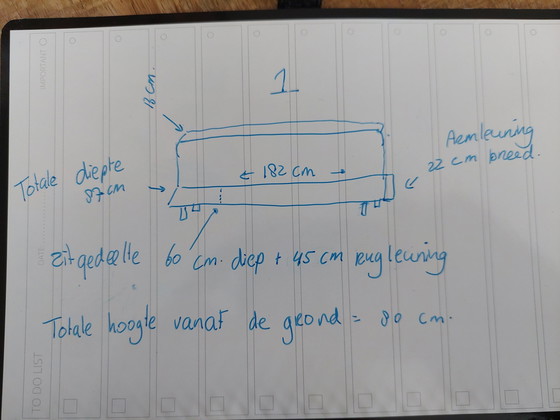 IMPORTANT
1
18 cm.
Armleuning
22 cm breed.
Totale diepte
87 cm
← 182 cm →
zitgedeelte 60 cm. diep + 45 cm rugleuning
Totale hoogte vanaf de grond = 80 cm.
TO DO LIST